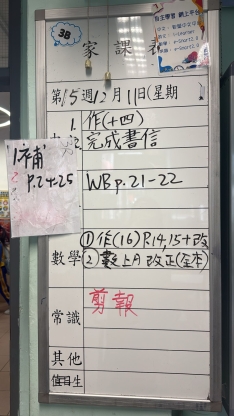 3B
家課表
自主學習 網上平台
第15週12月11日(星期
1. 作(十四)
完成書信
1.補
P.24-25
WB p.21-22
數學
① 作(16) P.14,15+改
② 數上A 改正(全本)
常識
剪報
其他
值日生